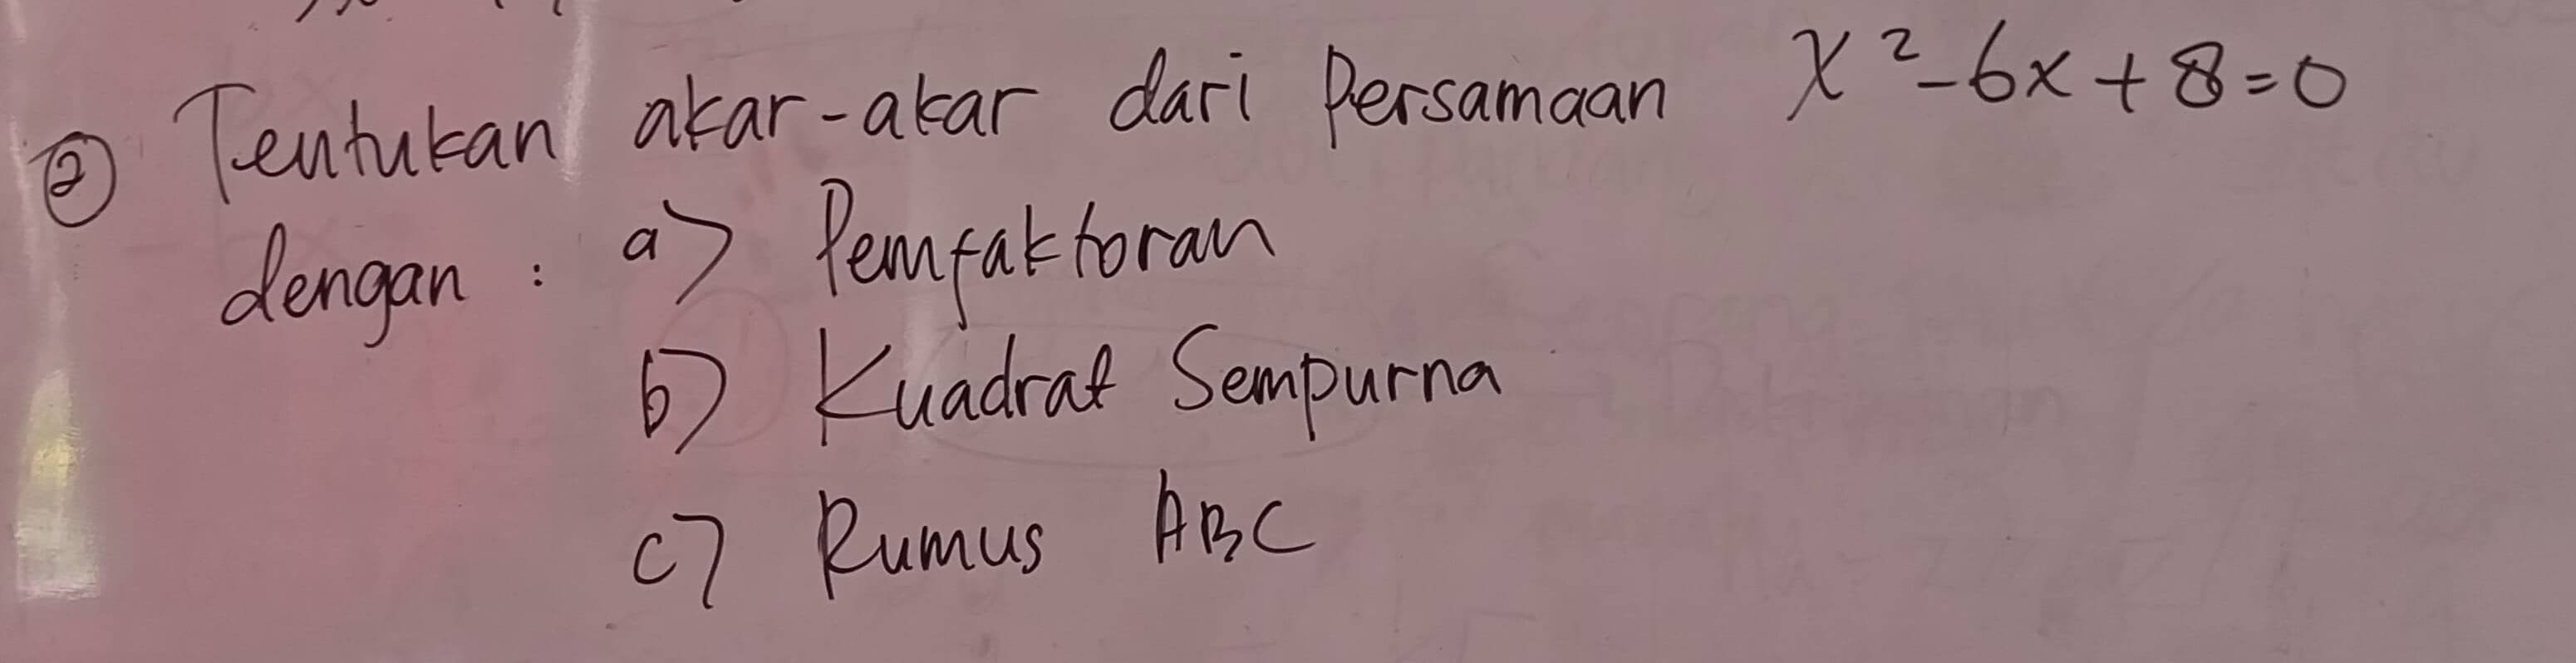 ② Tentukan akar-akar dari Persamaan x²-6x+8=0
dengan : a) Pemfaktoran
b) Kuadrat Sempurna
c) Rumus ABC